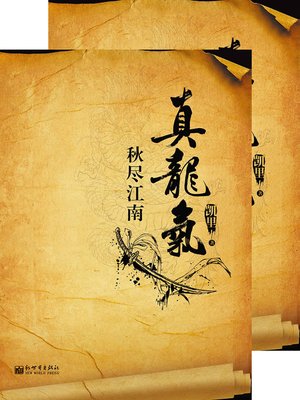 真龍氣
秋尽江南
著
新世界出版社
NEW WORLD PRESS